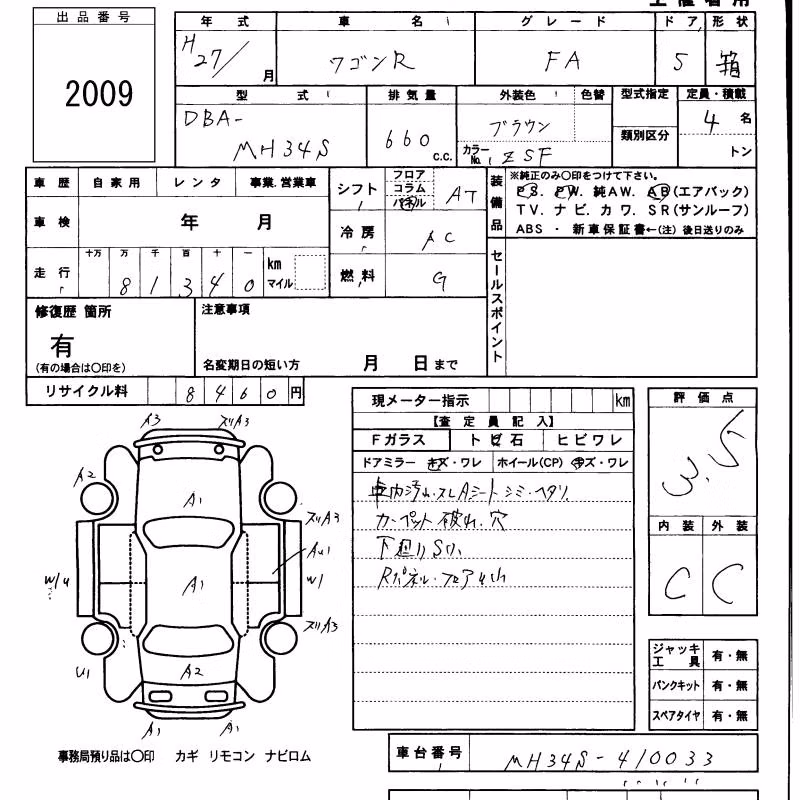 出品番号
2009
年式 車名 グレード ドア 形状
H27/ 月 ワゴンR FA 5 箱
型式 排気量 外装色 色替 型式指定 定員・積載
DBA- MH34S 660 c.c. ブラウン 4 名
カラーNo. ZSF 類別区分 トン
車歴 自家用 レンタ 事業.営業車
シフト フロア コラム パネル AT
装備品 ※純正のみ〇印をつけて下さい。
PS. PW. 純AW. AB(エアバック)
TV. ナビ. カワ. SR(サンルーフ)
ABS ・ 新車保証書←(注) 後日送りのみ
車検 年 月
冷房 AC
走行 十万 万 千 百 十 一 km マイル
81340
燃料 G
セールスポイント
修復歴 箇所
有
(有の場合は〇印を)
注意事項
名変期日の短い方 月 日まで
リサイクル料 8460円
現メーター指示 km
【査定員記入】
Fガラス トビ石 ヒビワレ
ドアミラー キズ・ワレ ホイール(CP) キズ・ワレ
車内汚れ.スレAシートシミ・ヘタリ
カーペット破れ.穴
下廻りSり
Rパネル・フロア
評価点
3.5
内装 外装
C C
ジャッキ工具 有・無
パンクキット 有・無
スペアタイヤ 有・無
A3 ズリA3
A2 A1
ズリA3
AU1
A1
W1
ズリA3
U1 A2
A1 A1
事務局預り品は〇印 カギ リモコン ナビロム
車台番号 MH34S-410033